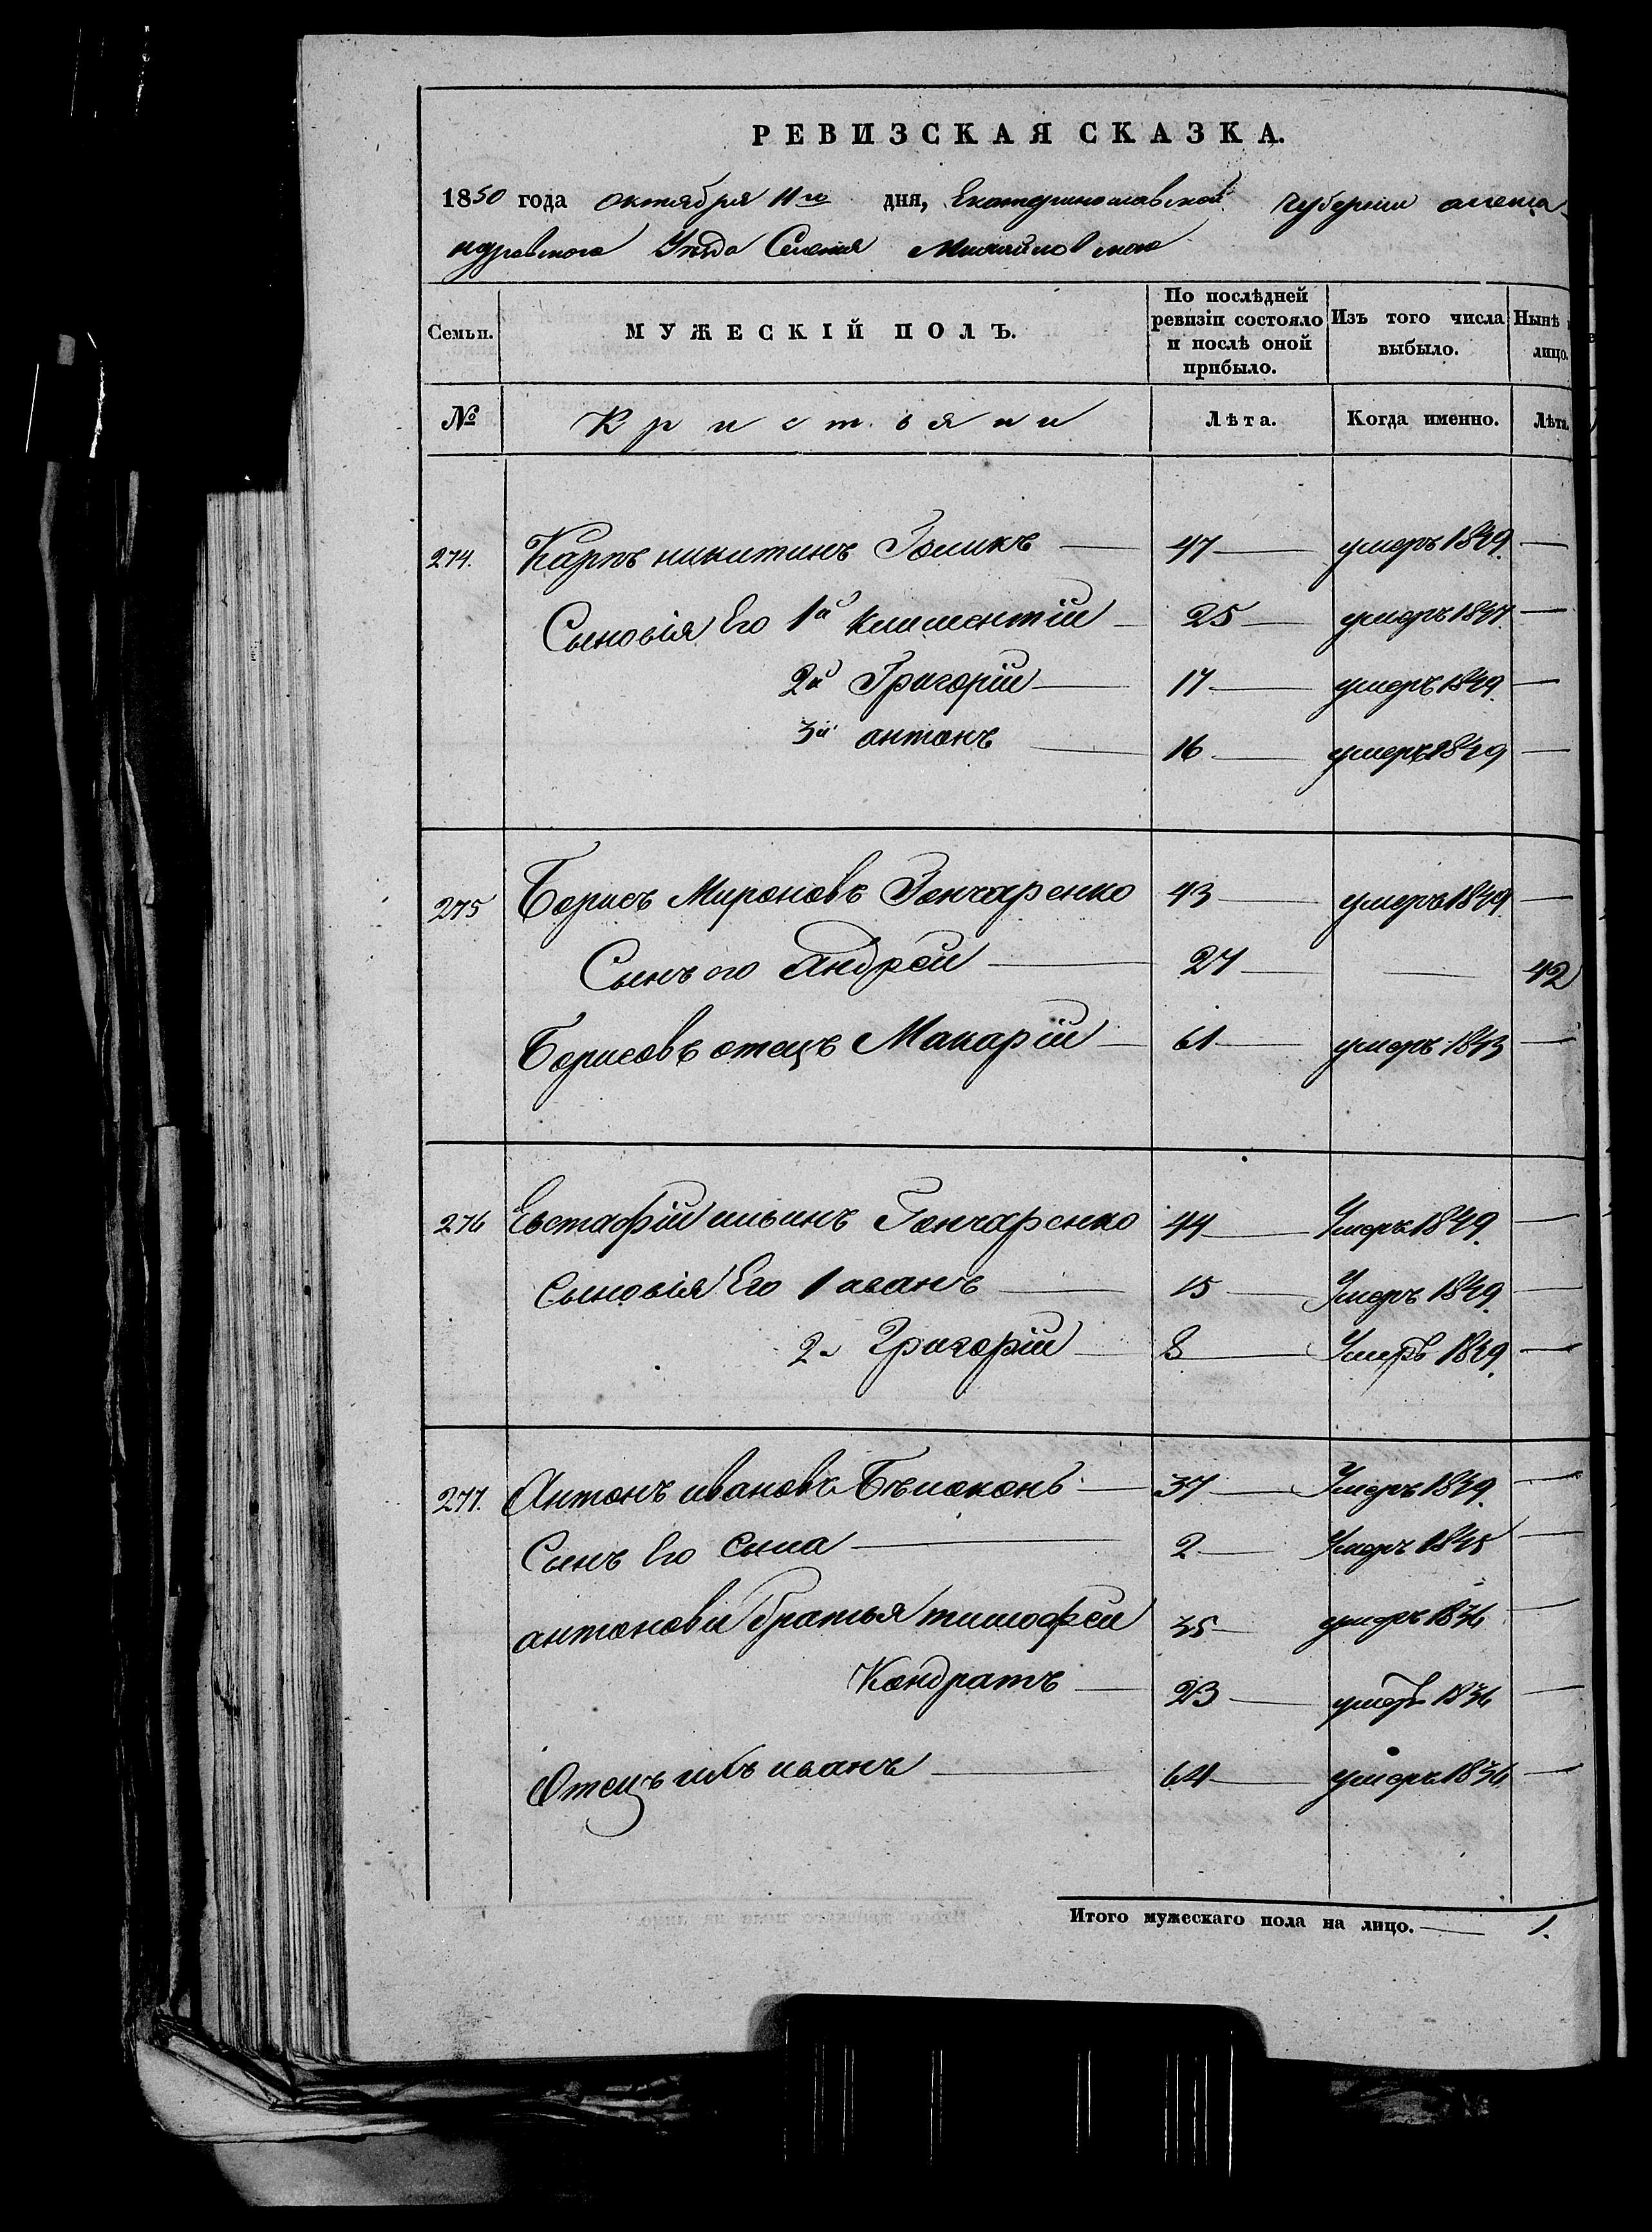 РЕВИЗСКАЯ СКАЗКА.
1850 года октября 11го дня, Екатеринославской губернии алекса-
ндровского Уезда Селения Михайловского
Семьи. МУЖЕСКІЙ ПОЛЪ. По послѣдней ревизіи состояло и послѣ оной прибыло. Изъ того числа выбыло. Нынѣ лицо.
№ Кристьяни Лѣта. Когда именно. Лѣта.
274. Карпъ никитинъ Голикъ — 47 — умеръ 1849. —
Сыновія Его 1й климентіи — 25 — умеръ 1837. —
2й Григоріи — 17 — умеръ 1849. —
3й антонъ — 16 — умеръ 1849 —
275 Борисъ Мироновъ Гончаренко 43 — умеръ 1849. —
Сынъ его Андреи — 27 — — 42
Борисовъ отецъ Макаріи — 61 — умеръ 1843 —
276 Евстафіи ильинъ Гончаренко 44 — Умеръ 1849. —
Сыновія Его 1 иванъ — 15 — Умеръ 1849. —
2й Григоріи — 8 — Умеръ 1849. —
277. Антонъ ивановъ Бѣлоконь — 37 — Умеръ 1849. —
Сынъ Его Сила — 2 — Умеръ 1845 —
антонови братья тимофеи 35 — умеръ 1836 —
Кондратъ — 23 — умеръ 1836 —
Отецъ ихъ иванъ — 64 — умеръ 1836 —
Итого мужескаго пола на лицо. — 1.